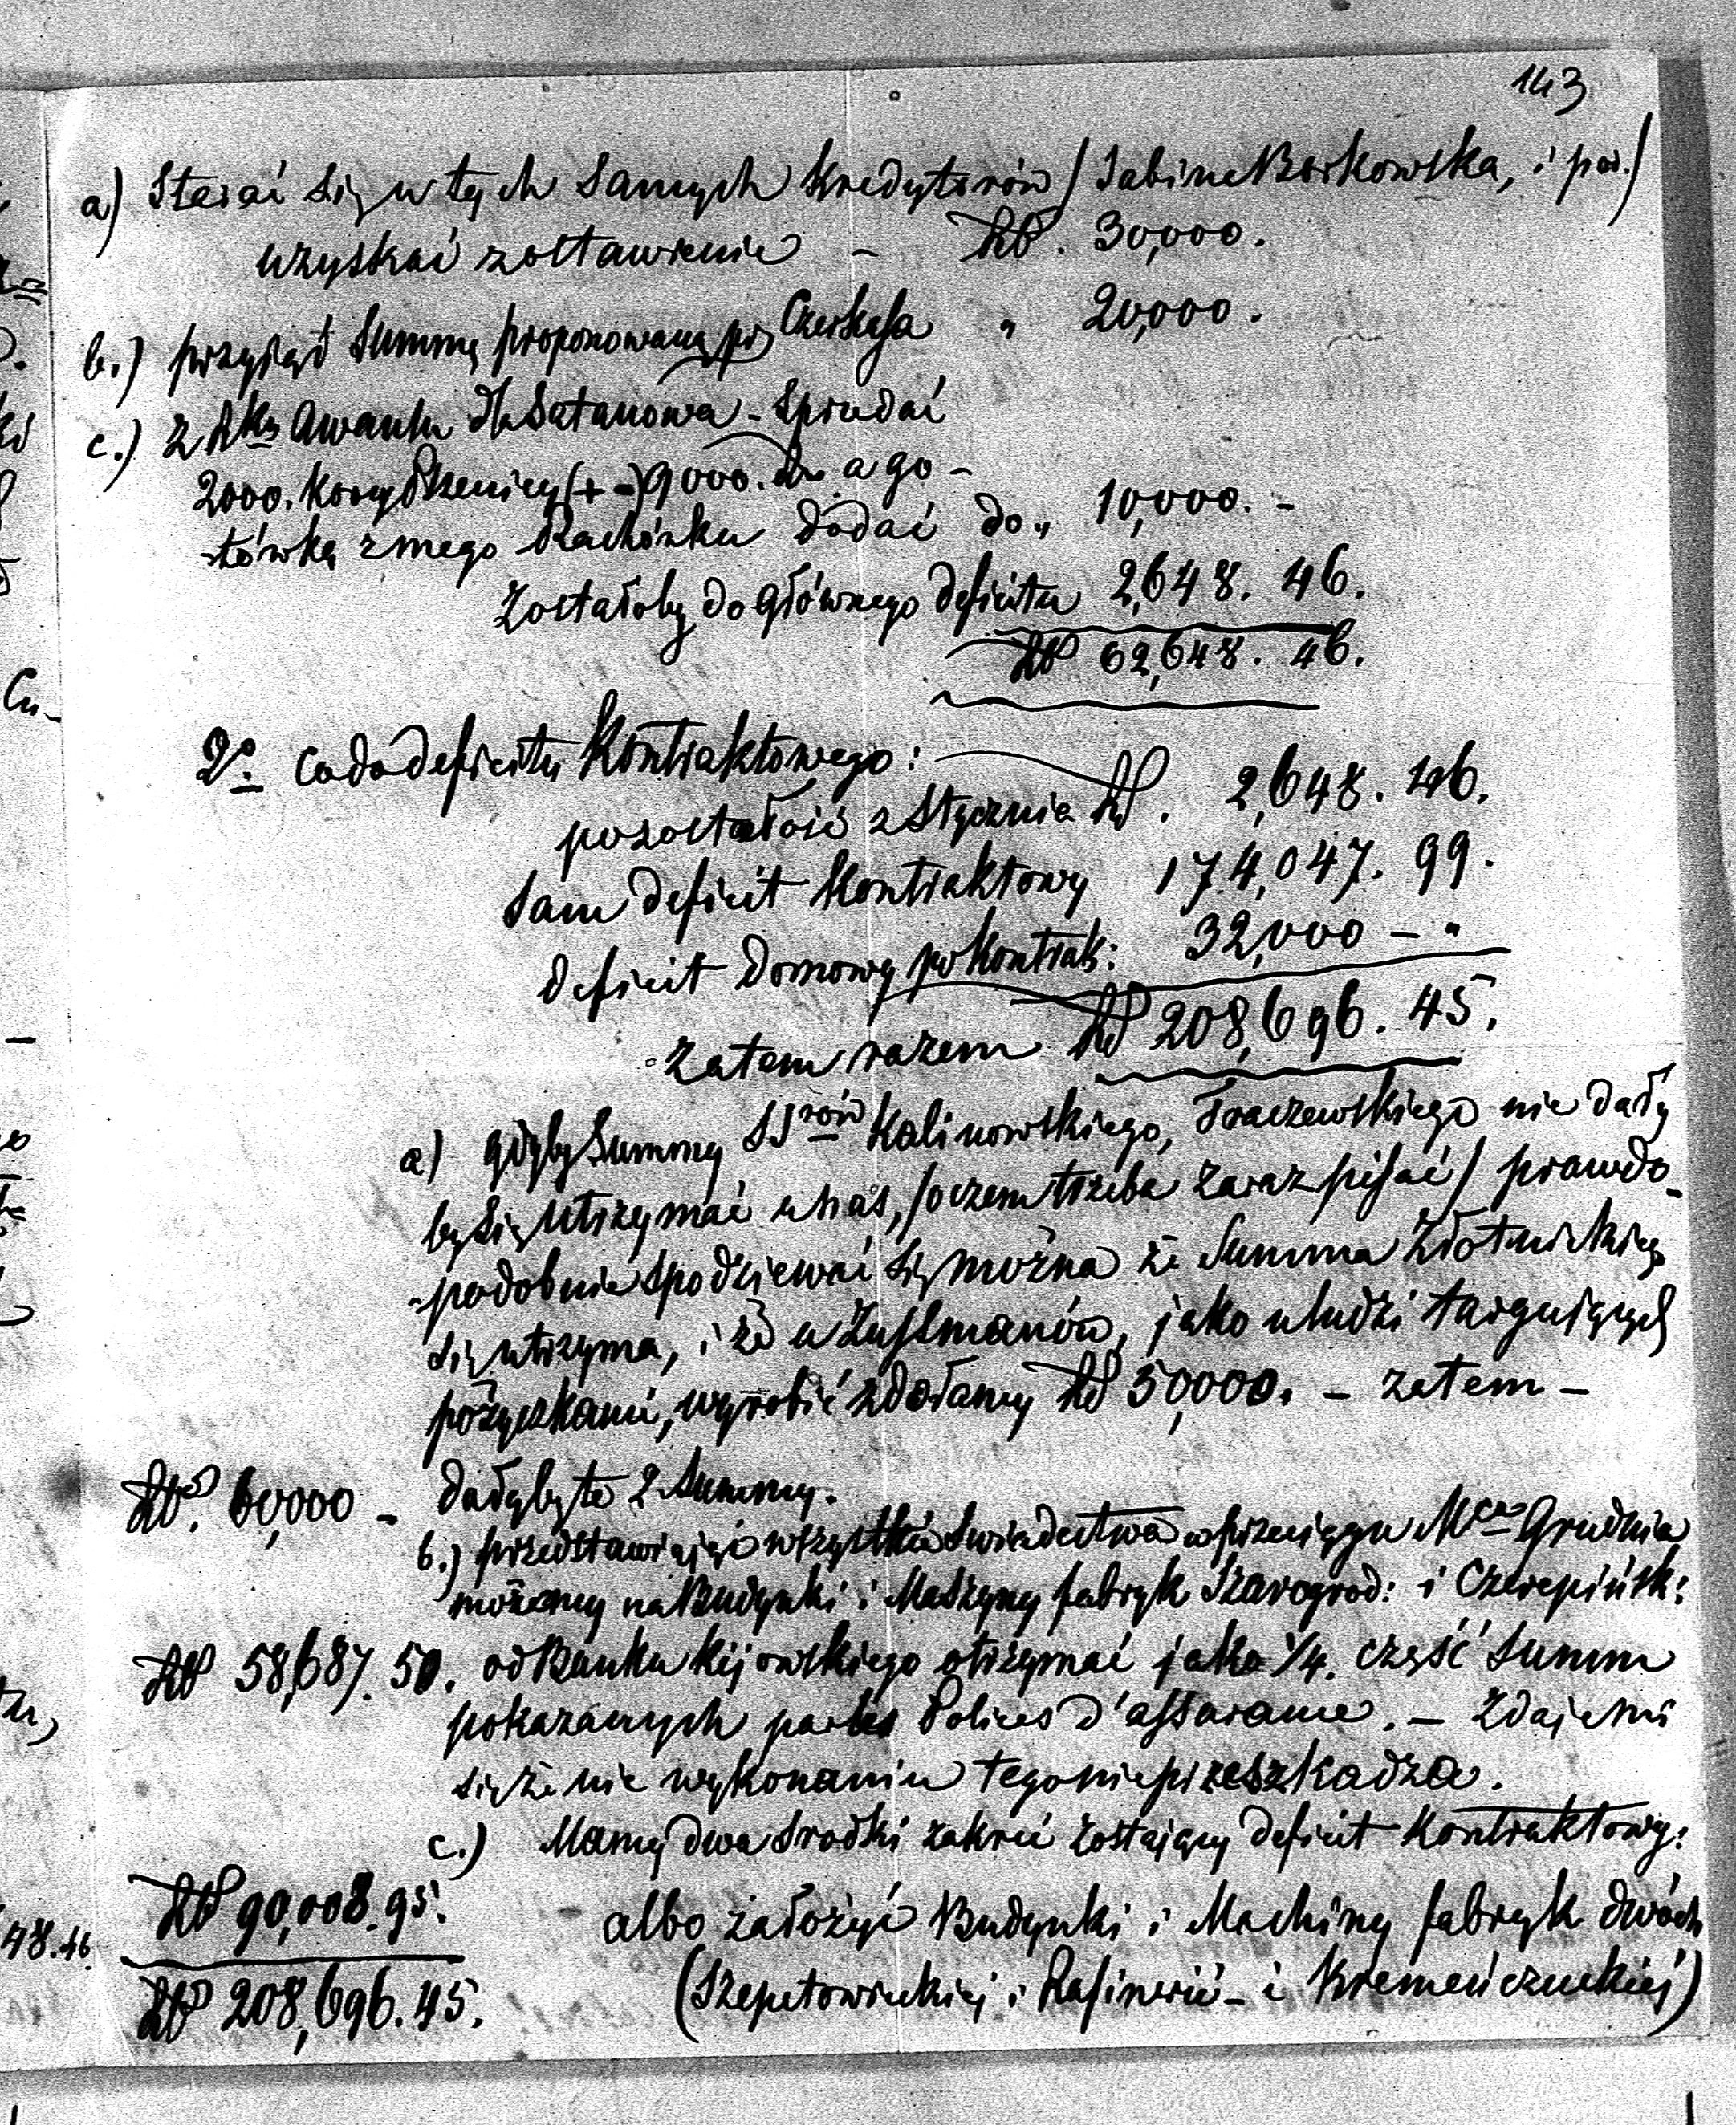 143
a) Starać się u tych samych kredytorów / Sabina Borkowska, i
uzyskać zostawienie – Rb. 30,000.
b.) przyjąć Summę proponowaną prz Czerkasa „ 20,000.
c.) z Awansu dla Satanowa – Sprzedać
2000. Korcy Pszenicy (+ –) 9000. a go –
tówką z mego Rachónku dodać do „ 10,000. –
Zostałoby do głównego deficitu 2,648. 46.
Rb 62,648. 46.
2o. Co do deficitu Kontraktowego:
pozostałość z Stycznia Rb. 2,648. 46.
Sam deficit Kontraktowy 174,047. 99.
deficit domowy po Kontrak: 32,000 – „
Zatem razem Rb 208,696. 45.
a) gdyby Summy SSrów Kalinowskiego, Traczewskiego nie dały
by się utrzymać u nas, / o czem trzeba zaraz pisać / prawdo-
podobnie spodziewać się można że Summa Złotnickiego
się utrzyma, i że u Zusmanów, jako u ludzi targujących
pożyczkami, wyrobić zdołamy Rb 30,000. – zatem –
Rb. 60,000 – dałyby te 2 Summy.
b.) przedstawiając wszystkie Swiadectwa w przeciągu Mca Grudnia
możemy na Budynki i Maszyny fabryk Szarogrod: i Czerepińsk:
Rb 58,687. 50. od Banku Kijowskiego otrzymać jako 1/4. część Summ
pokazanych par les Polices d'assurance. – Zdaje mi
się że nic wykonaniu tego nieprzeszkadza.
c.) Mamy dwa srodki zakryć zostający deficit Kontraktowy:
Rb 90,008. 95. albo założyć Budynki i Machiny fabryk dwóch
48. 46.
Rb 208,696. 45. (Szepetowieckiej i Rafinerii – i Kremeńczuckiej)